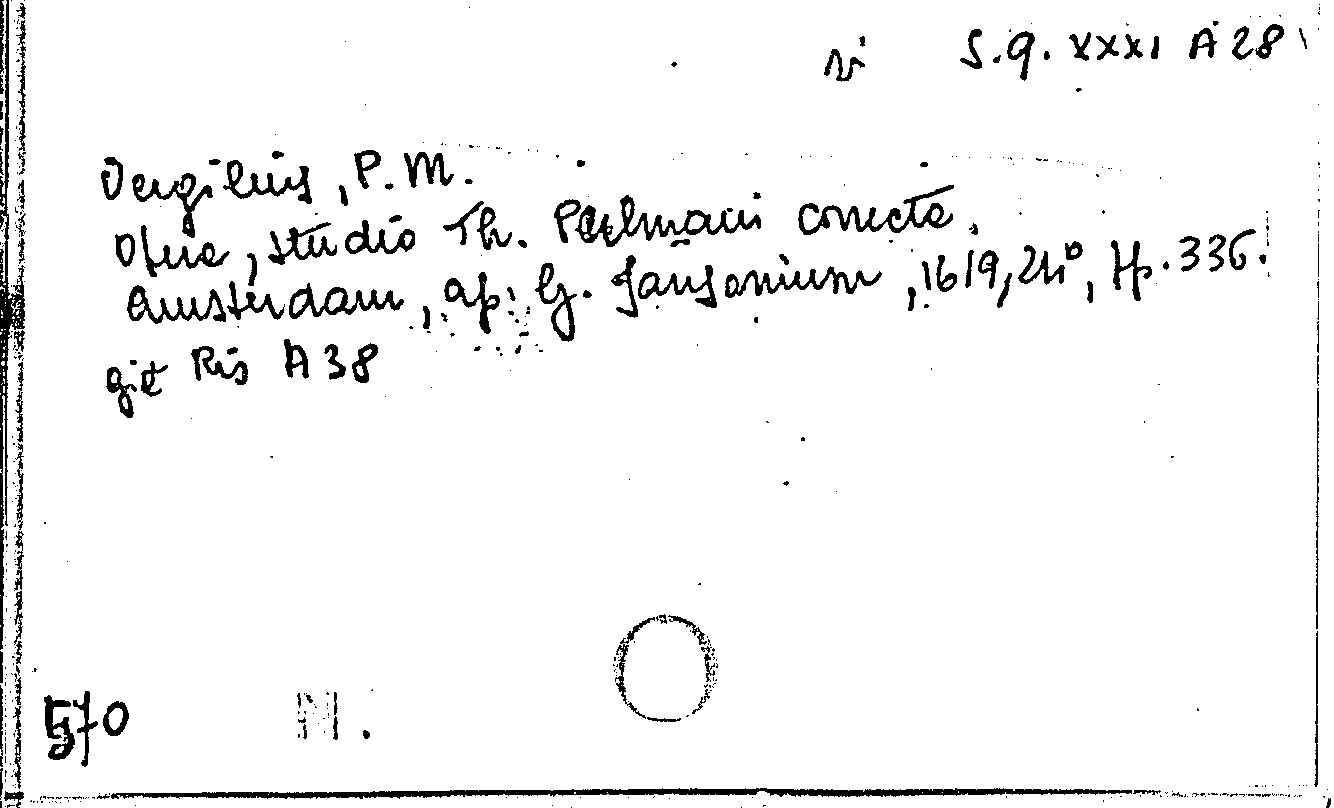 S.q. XXXI A 28
Vergilius, P.M.
Opera, studio Th. Pulmani correcta.
Amsterdam, ap. G. Jansonium, 1619, 24°, Hp. 336.
già Ris A 38
570
N.